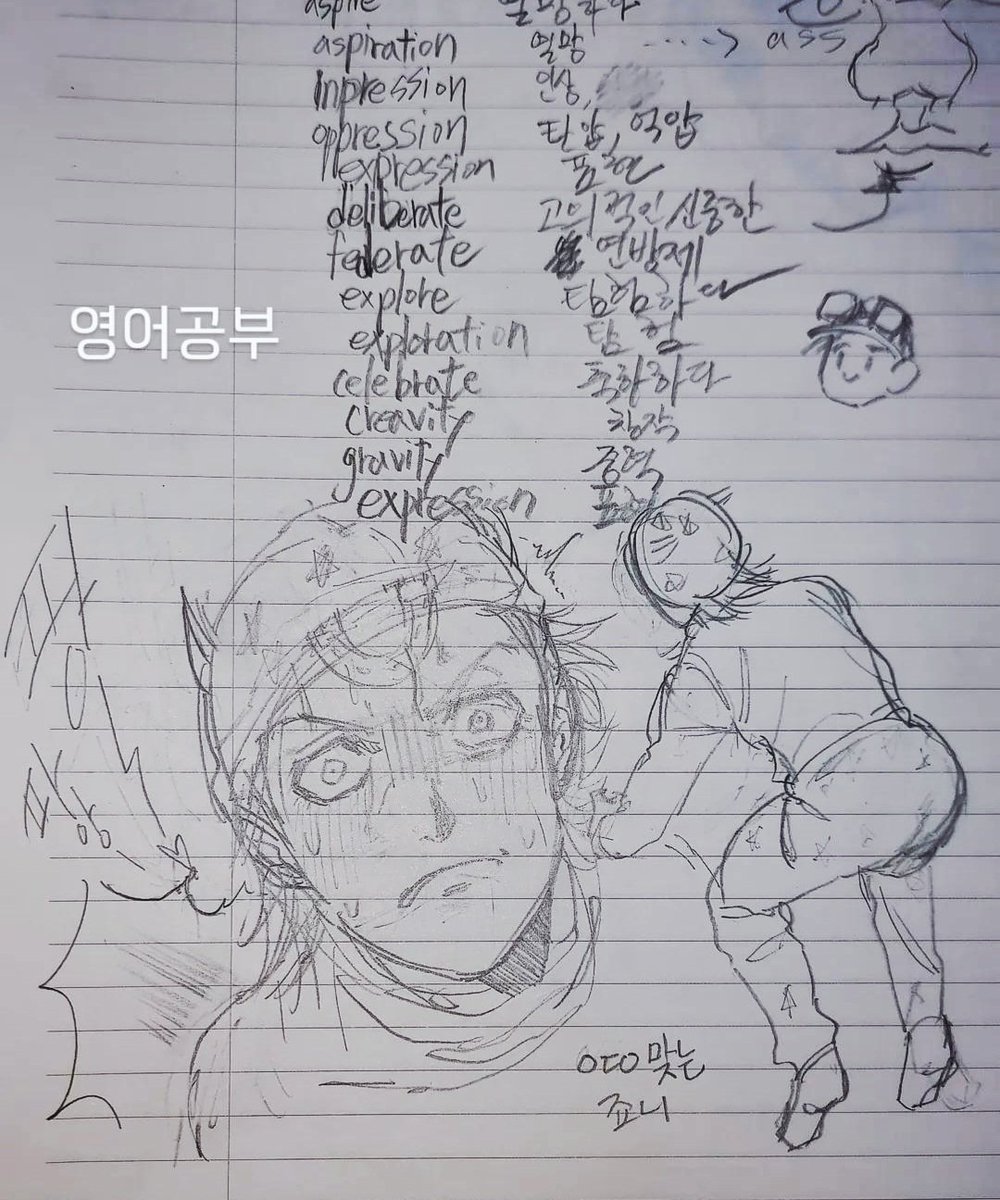 aspire 열망하다
aspiration 열망 ----> ass
inpression 인상,
oppression 탄압, 억압
expression 표현
deliberate 고의적인 신중한
federate 연방제
explore 탐험하다
영어공부
exploration 탐험
celebrate 축하하다
creavity 창작
gravity 중력
expression 표현
맞는
죠니